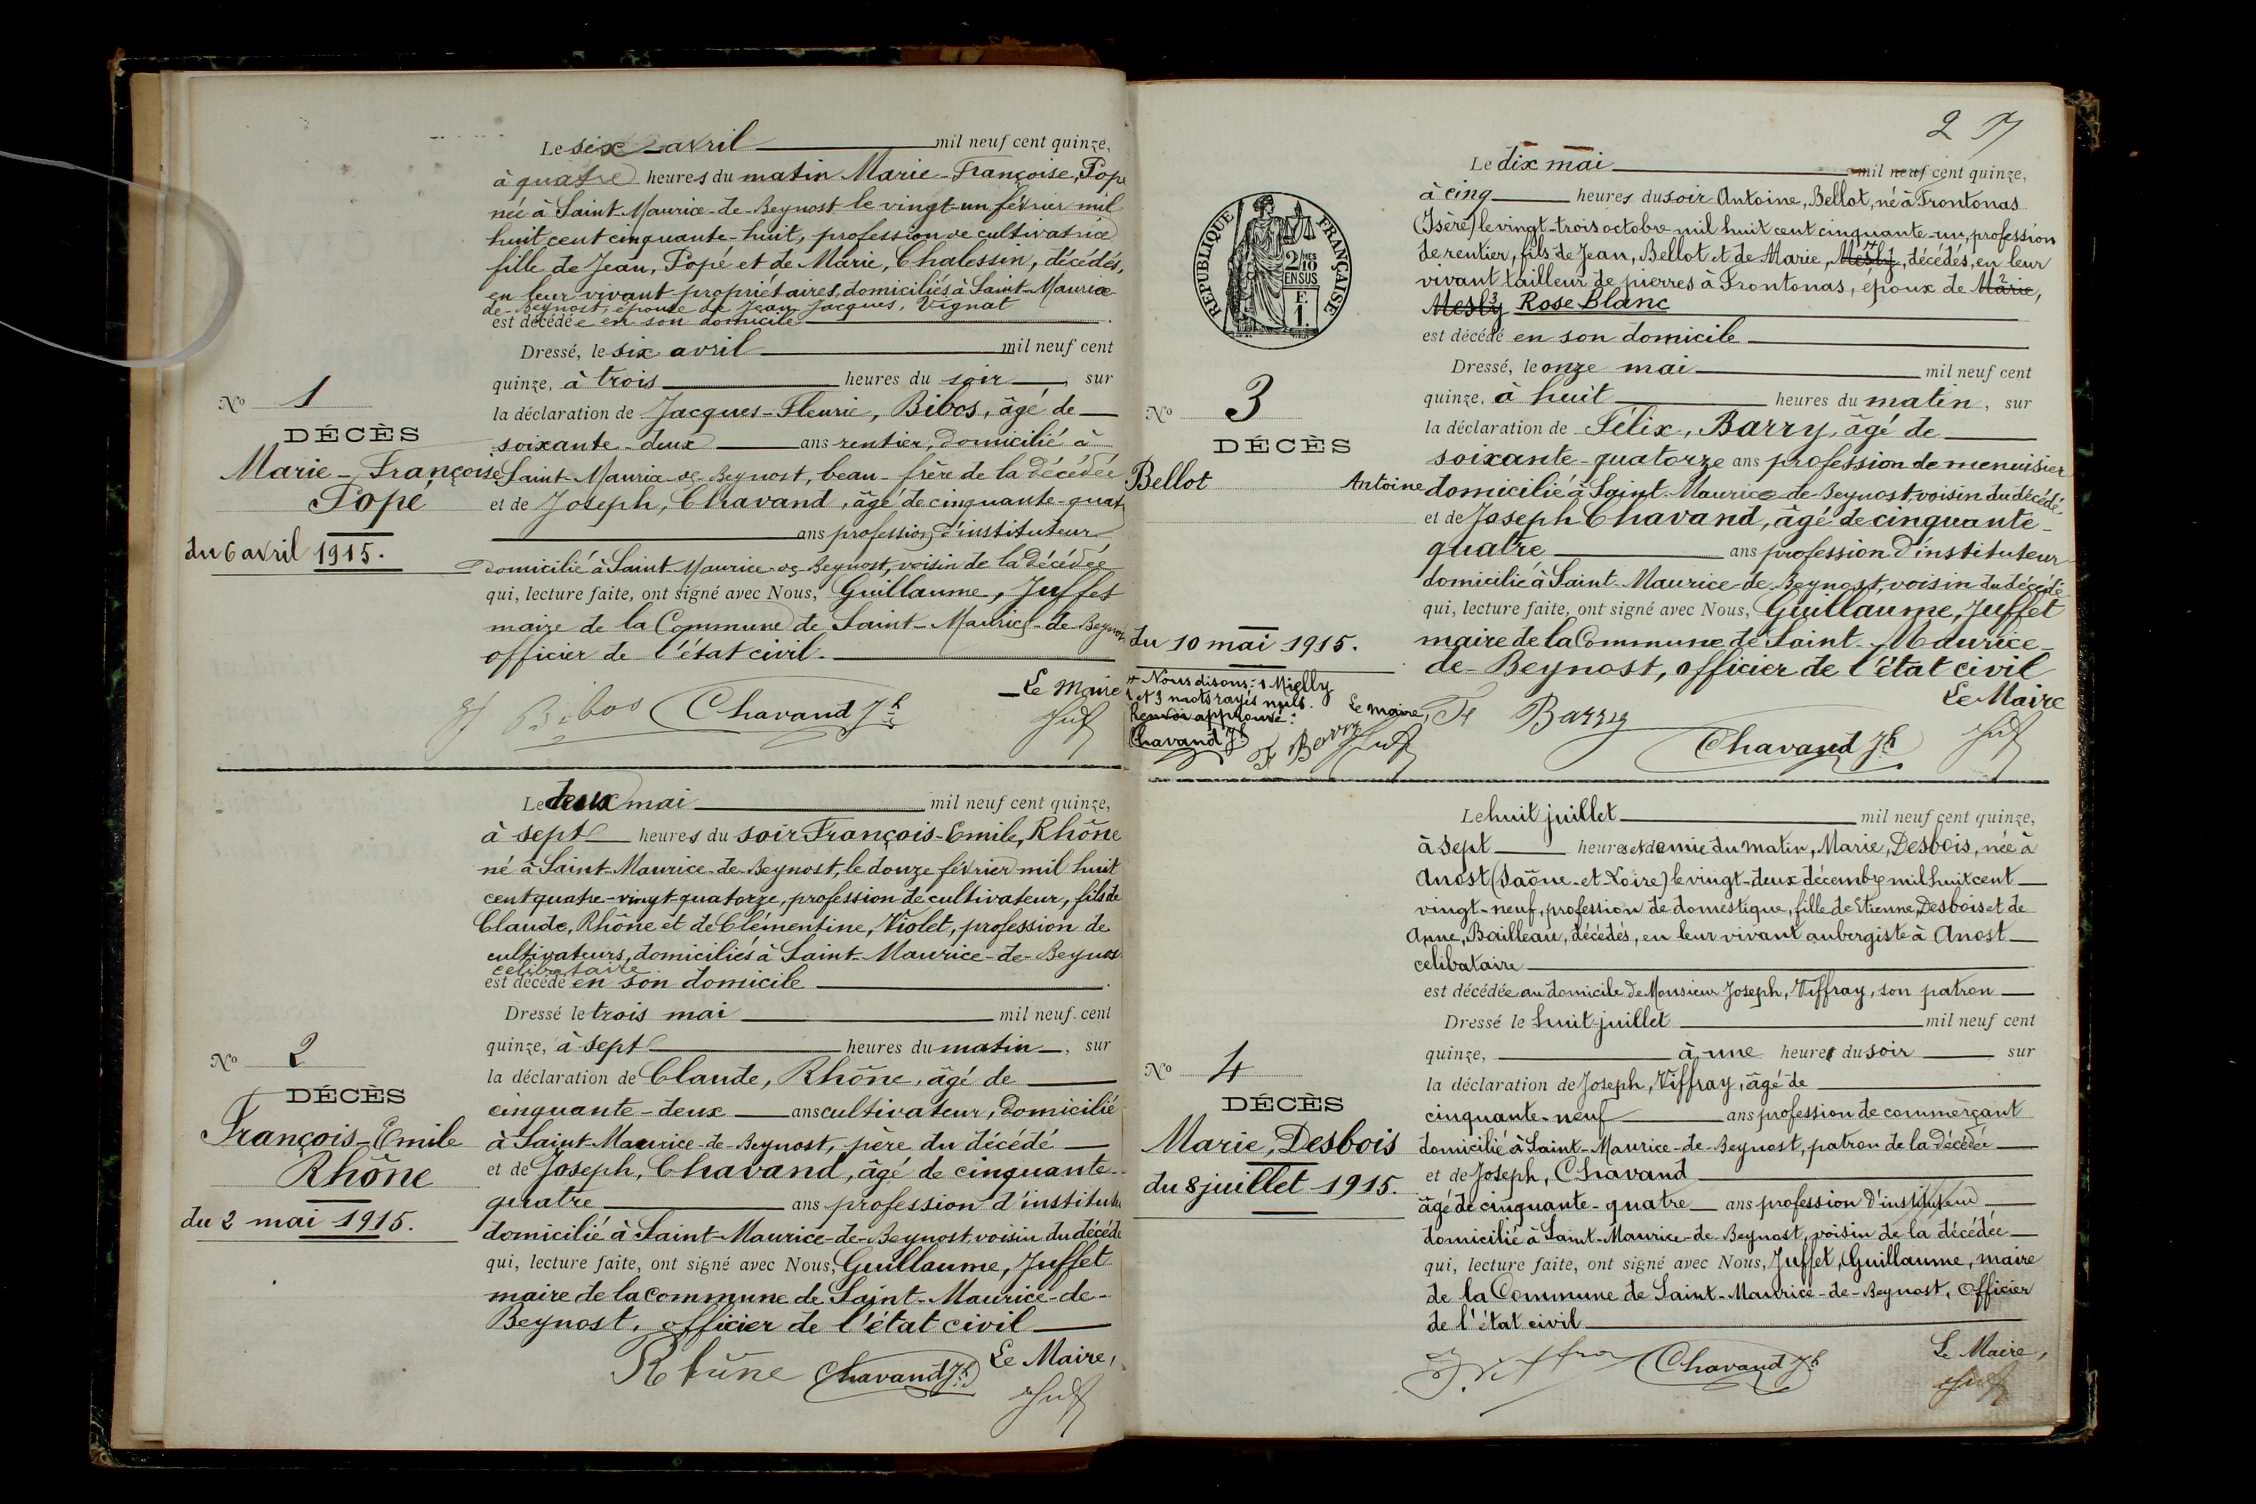 Le six avril mil neuf cent quinze,
à quatre heures du matin Marie-Françoise, Popé
née à Saint-Maurice-de-Beynost le vingt-un février mil
huit cent cinquante-huit, profession de cultivatrice
fille de Jean, Popé et de Marie, Chalessin, décédés,
en leur vivant propriétaires, domiciliés à Saint-Maurice-
de-Beynost, épouse de Jean Jacques, Vignat
est décédée en son domicile
Dressé, le six avril mil neuf cent
quinze, à trois heures du soir, sur
la déclaration de Jacques-Fleurie, Bibos, âgé de
soixante-deux ans rentier, domicilié à
Saint-Maurice-de-Beynost, beau-frère de la décédée
et de Joseph, Chavand, âgé de cinquante-quat
ans profession d'instituteur
domicilié à Saint-Maurice-de-Beynost, voisin de la décédée
qui, lecture faite, ont signé avec Nous, Guillaume, Juffet
maire de la Commune de Saint-Maurice-de-Beynos
officier de l'état civil.
Le Maire
Bibos Chavand Jh
No 1
DÉCÈS
Marie-Françoise
Popé
du 6 avril 1915.
Le deux mai mil neuf cent quinze,
à sept heures du soir François-Emile, Rhône
né à Saint-Maurice-de-Beynost, le douze février mil huit
cent quatre-vingt-quatorze, profession de cultivateur, fils de
Claude, Rhône et de Clémentine, Violet, profession de
cultivateurs, domiciliés à Saint-Maurice-de-Beynos
célibataire
est décédé en son domicile
Dressé le trois mai mil neuf cent
quinze, à sept heures du matin, sur
la déclaration de Claude, Rhône, âgé de
cinquante-deux ans cultivateur, domicilié
à Saint-Maurice-de-Beynost, père du décédé
et de Joseph, Chavand, âgé de cinquante-
quatre ans profession d'institut
domicilié à Saint-Maurice-de-Beynost, voisin du décédé
qui, lecture faite, ont signé avec Nous, Guillaume, Juffet
maire de la commune de Saint-Maurice-de-
Beynost, officier de l'état civil
Le Maire,
Rhône Chavand Jh
No 2
DÉCÈS
François-Emile
Rhône
du 2 mai 1915.
2
RÉPUBLIQUE FRANÇAISE
2/10 MES
EN SUS
F.
1.
Le dix mai mil neuf cent quinze,
à cinq heures du soir Antoine, Bellot, né à Frontonas
(Isère) le vingt-trois octobre mil huit cent cinquante-un, profession
de rentier, fils de Jean, Bellot et de Marie, Mesly, décédés, en leur
vivant tailleur de pierres à Frontonas, époux de Marie,
Mesly Rose Blanc
est décédé en son domicile
Dressé, le onze mai mil neuf cent
quinze, à huit heures du matin, sur
la déclaration de Félix, Barry, âgé de
soixante-quatorze ans profession de menuisier
domicilié à Saint-Maurice-de-Beynost, voisin du décédé,
et de Joseph Chavand, âgé de cinquante-
quatre ans profession d'instituteur
domicilié à Saint-Maurice-de-Beynost, voisin du décédé
qui, lecture faite, ont signé avec Nous, Guillaume, Juffet
maire de la Commune de Saint-Maurice-
de-Beynost, officier de l'état civil
Le Maire
F Barry
Chavand Jh
No 3
DÉCÈS
Bellot Antoine
du 10 mai 1915.
Nous disons: 1 Mielly
et 3 mots rayés nuls.
Renvoi approuvé:
Le maire,
Chavand Jh F Barry
Le huit juillet mil neuf cent quinze,
à sept heures et demie du matin, Marie, Desbois, née à
Anost (Saône-et-Loire) le vingt-deux décembre mil huit cent
vingt-neuf, profession de domestique, fille de Etienne, Desbois et de
Anne, Bailleau, décédés, en leur vivant aubergiste à Anost
celibataire
est décédée au domicile de Monsieur Joseph, Viffray, son patron
Dressé le huit juillet mil neuf cent
quinze, à une heure du soir sur
la déclaration de Joseph, Viffray, âgé de
cinquante-neuf ans profession de commerçant
domicilié à Saint-Maurice-de-Beynost, patron de la décédée
et de Joseph, Chavand
âgé de cinquante-quatre ans profession d'instituteur
domicilié à Saint-Maurice-de-Beynost, voisin de la décédée
qui, lecture faite, ont signé avec Nous, Juffet, Guillaume, maire
de la Commune de Saint-Maurice-de-Beynost, Officier
de l'état civil
Le Maire,
Chavand Jh
No 4
DÉCÈS
Marie, Desbois
du 8 juillet 1915.